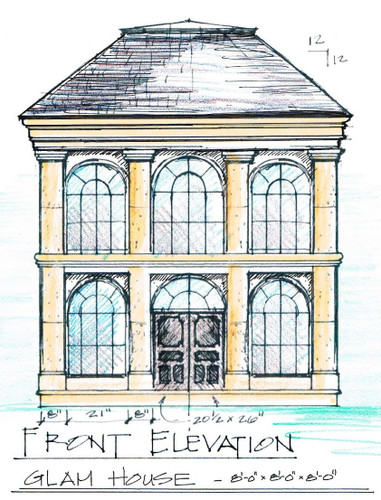 12
12
8" 21" 8" 20½ × 26"
FRONT ELEVATION
GLAM HOUSE - 8'-0" × 8'-0" × 8'-0"